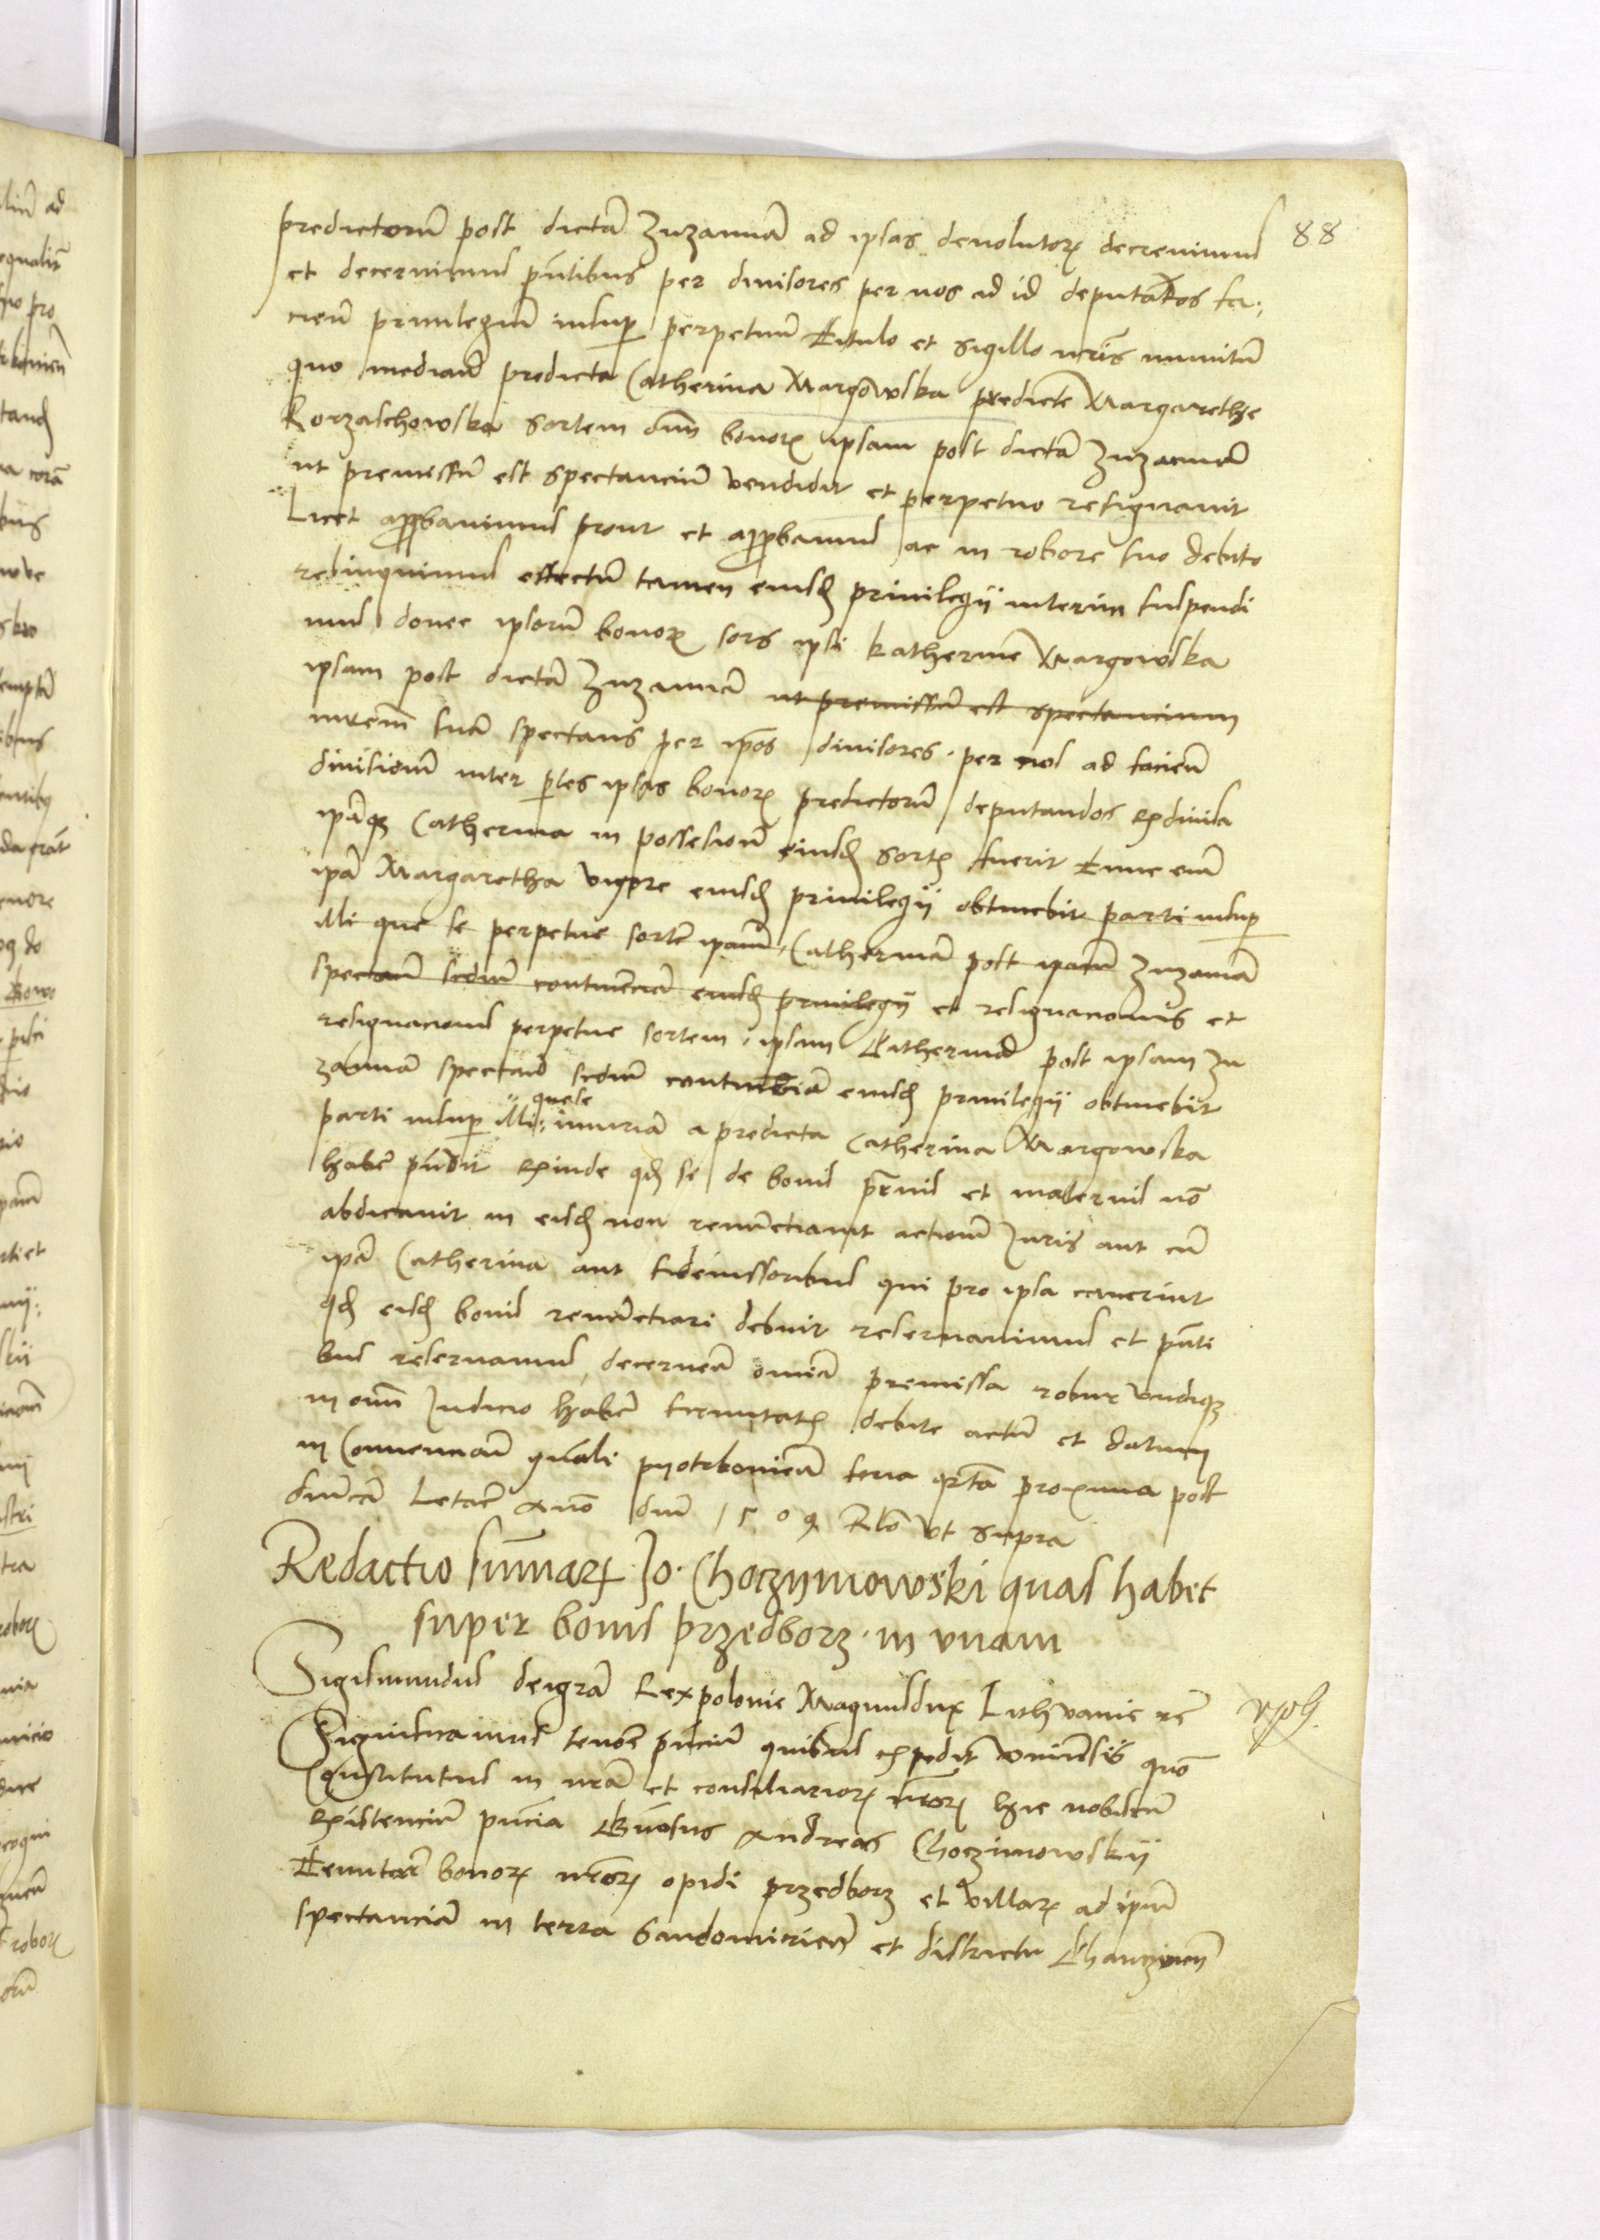 88
predictorum post dictam Zuzannam ad ipsas devolutorum decrevimus
et decernimus pntibus per divisores per nos ad id deputatos fa-
cien privilegium insup perpetuum titulo et sigillo nris munitum
quo median predicta Catherina Margowska predicte Margarethe
Korzaschowska sortem omn bonorum ipsam post dictam Zuzannam
ut premissum est spectancium vendidit et perpetuo resignavit
Licet approbavimus prout et approbamus ac in robore suo debito
relinquimus effectum tamen eiusdem privilegii interim suspendi
mus donec ipsorum bonorum sors ipsi Katherine Margowska
ipsam post dictam Zuzannam ut premissum est spectancium
spectans per ipos divisores per nos ad facien
divisionem inter ptes ipsas bonorum predictorum deputandos exdivisa
ipaque Catherina in possesionem eiusdem sortis fuerit tunc eciam
ipa Margaretha vigore eiusdem privilegii obtinebit parti insup
illi que se perpetue sortem ipam Catherinam post ipam Zuzannam
spectan secundum continenciam eiusdem privilegii et resignacionis et
resignacionis perpetue sortem ipsam Catherinam post ipsam Zu
zannam spectan secundum continenciam eiusdem privilegii obtinebit
parti insup illi que se iniuriam a predicta Catherina Margowska
habere exinde quod se de bonis pternis et maternis non
abdicavit in eisdem non renunctiavit actionem Iuris aut cum
ipa Catherina aut fideiussoribus qui pro ipsa caverint
quod eisdem bonis renunctiari debuit reservavimus et pnti
bus reservamus decernen omnia premissa robur undique
in omni Iudicio habere firmitatis debite actum et datum
in Convencione gnali pyotrkovien feria qrta proxima post
dnicam Letare Anno dni 1509 Rlo ut supra
Redactio summarum Jo. Choczymowski quas habet
super bonis przedborz in unam
Sigismundus dei gra Rex polonie Magnusdux Lithvanie etc
Significamus tenore pncium quibus expedit universis quo
Constitutus in nra et consiliariorum nrorum hic nobiscum
existencium pncia Gnosus Andreas Choczimowskij
Tenutar bonorum nrorum opidi przedborz et villarum ad ipum
spectanciam in terra Sandomirien et districtu Chanczinen